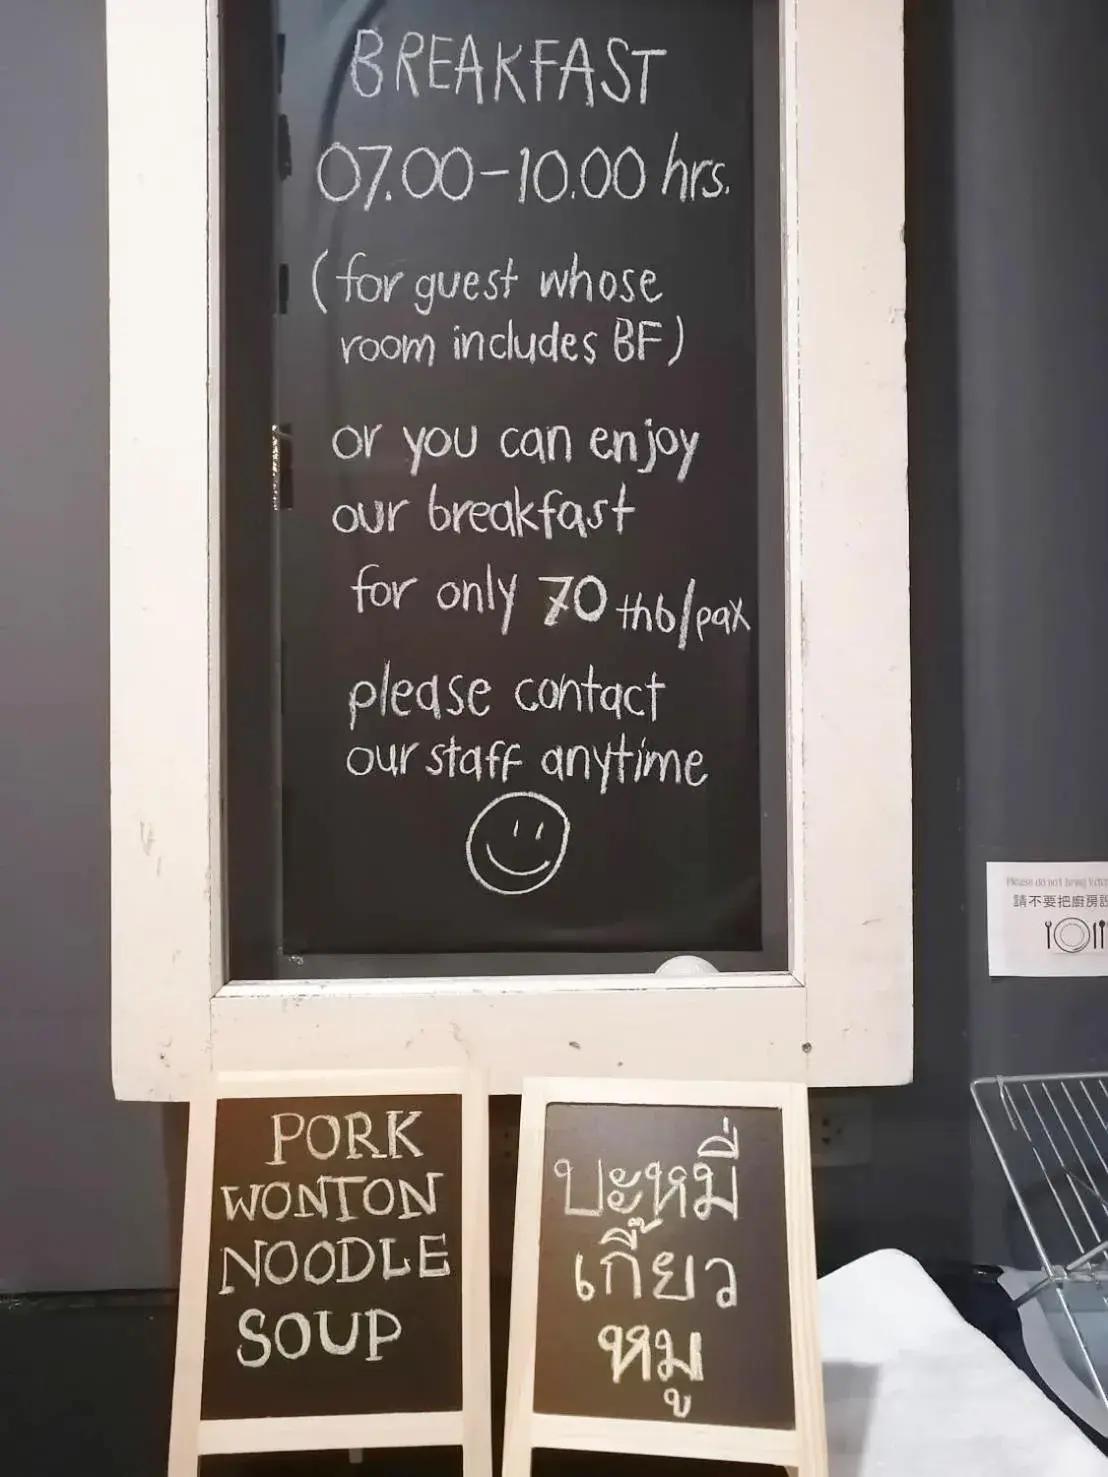 BREAKFAST
07.00-10.00 hrs.
(for guest whose
room includes BF)
or you can enjoy
our breakfast
for only 70 thb/pax
please contact
our staff anytime
PORK
WONTON
NOODLE
SOUP
บะหมี่
เกี๊ยว
หมู
Please do not bring
請不要把廚房